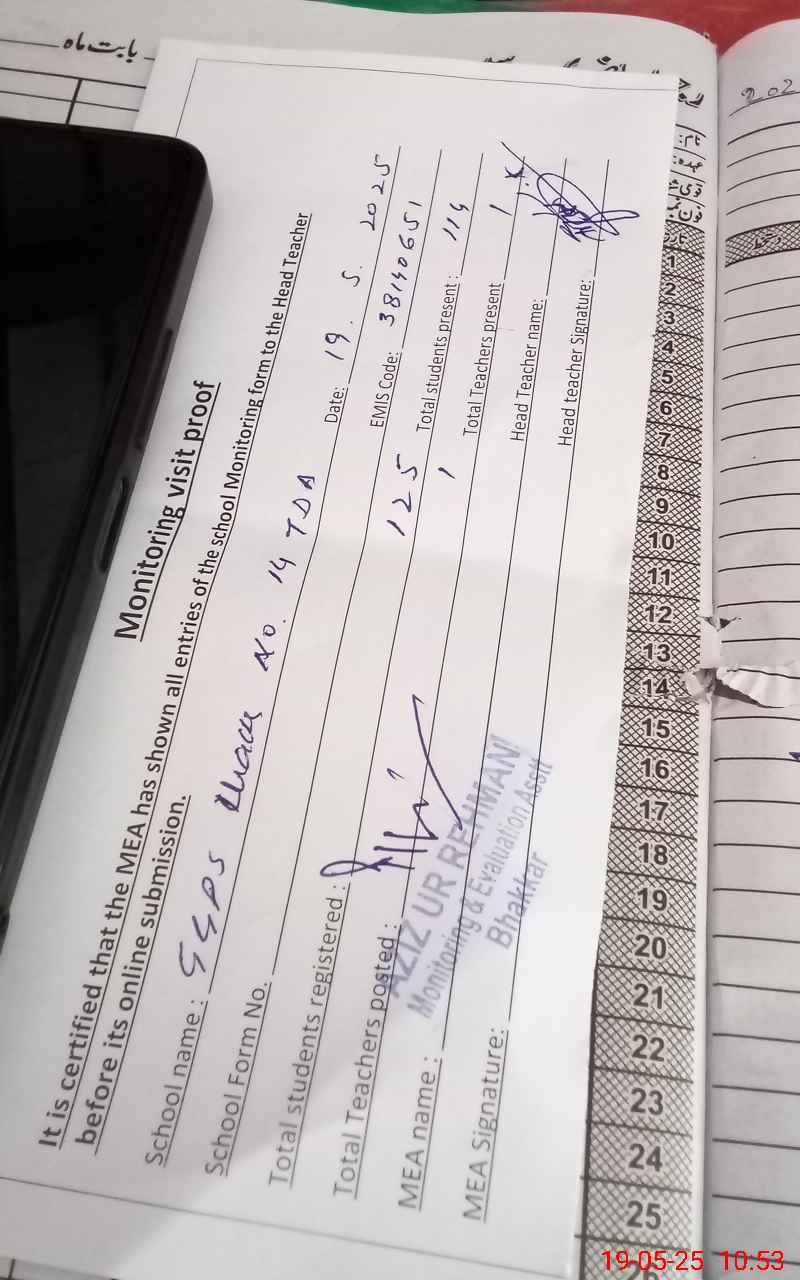 بابت ماہ
Monitoring visit proof
It is certified that the MEA has shown all entries of the school Monitoring form to the Head Teacher
before its online submission.
School name : GGPS No. 14 TDA Date: 19. 5. 2025
School Form No. EMIS Code: 38140651
Total students registered : 125 Total students present : 114
Total Teachers posted : 1 Total Teachers present 1
MEA name : Head Teacher name:
MEA Signature: Head teacher Signature:
AZIZ UR REHMAN
Monitoring & Evaluation Asstt
Bhakkar
202
نام
عہدہ
تاریخ
دستخط
1
2
3
4
5
6
7
8
9
10
11
12
13
14
15
16
17
18
19
20
21
22
23
24
25
26
19-05-25 10:53